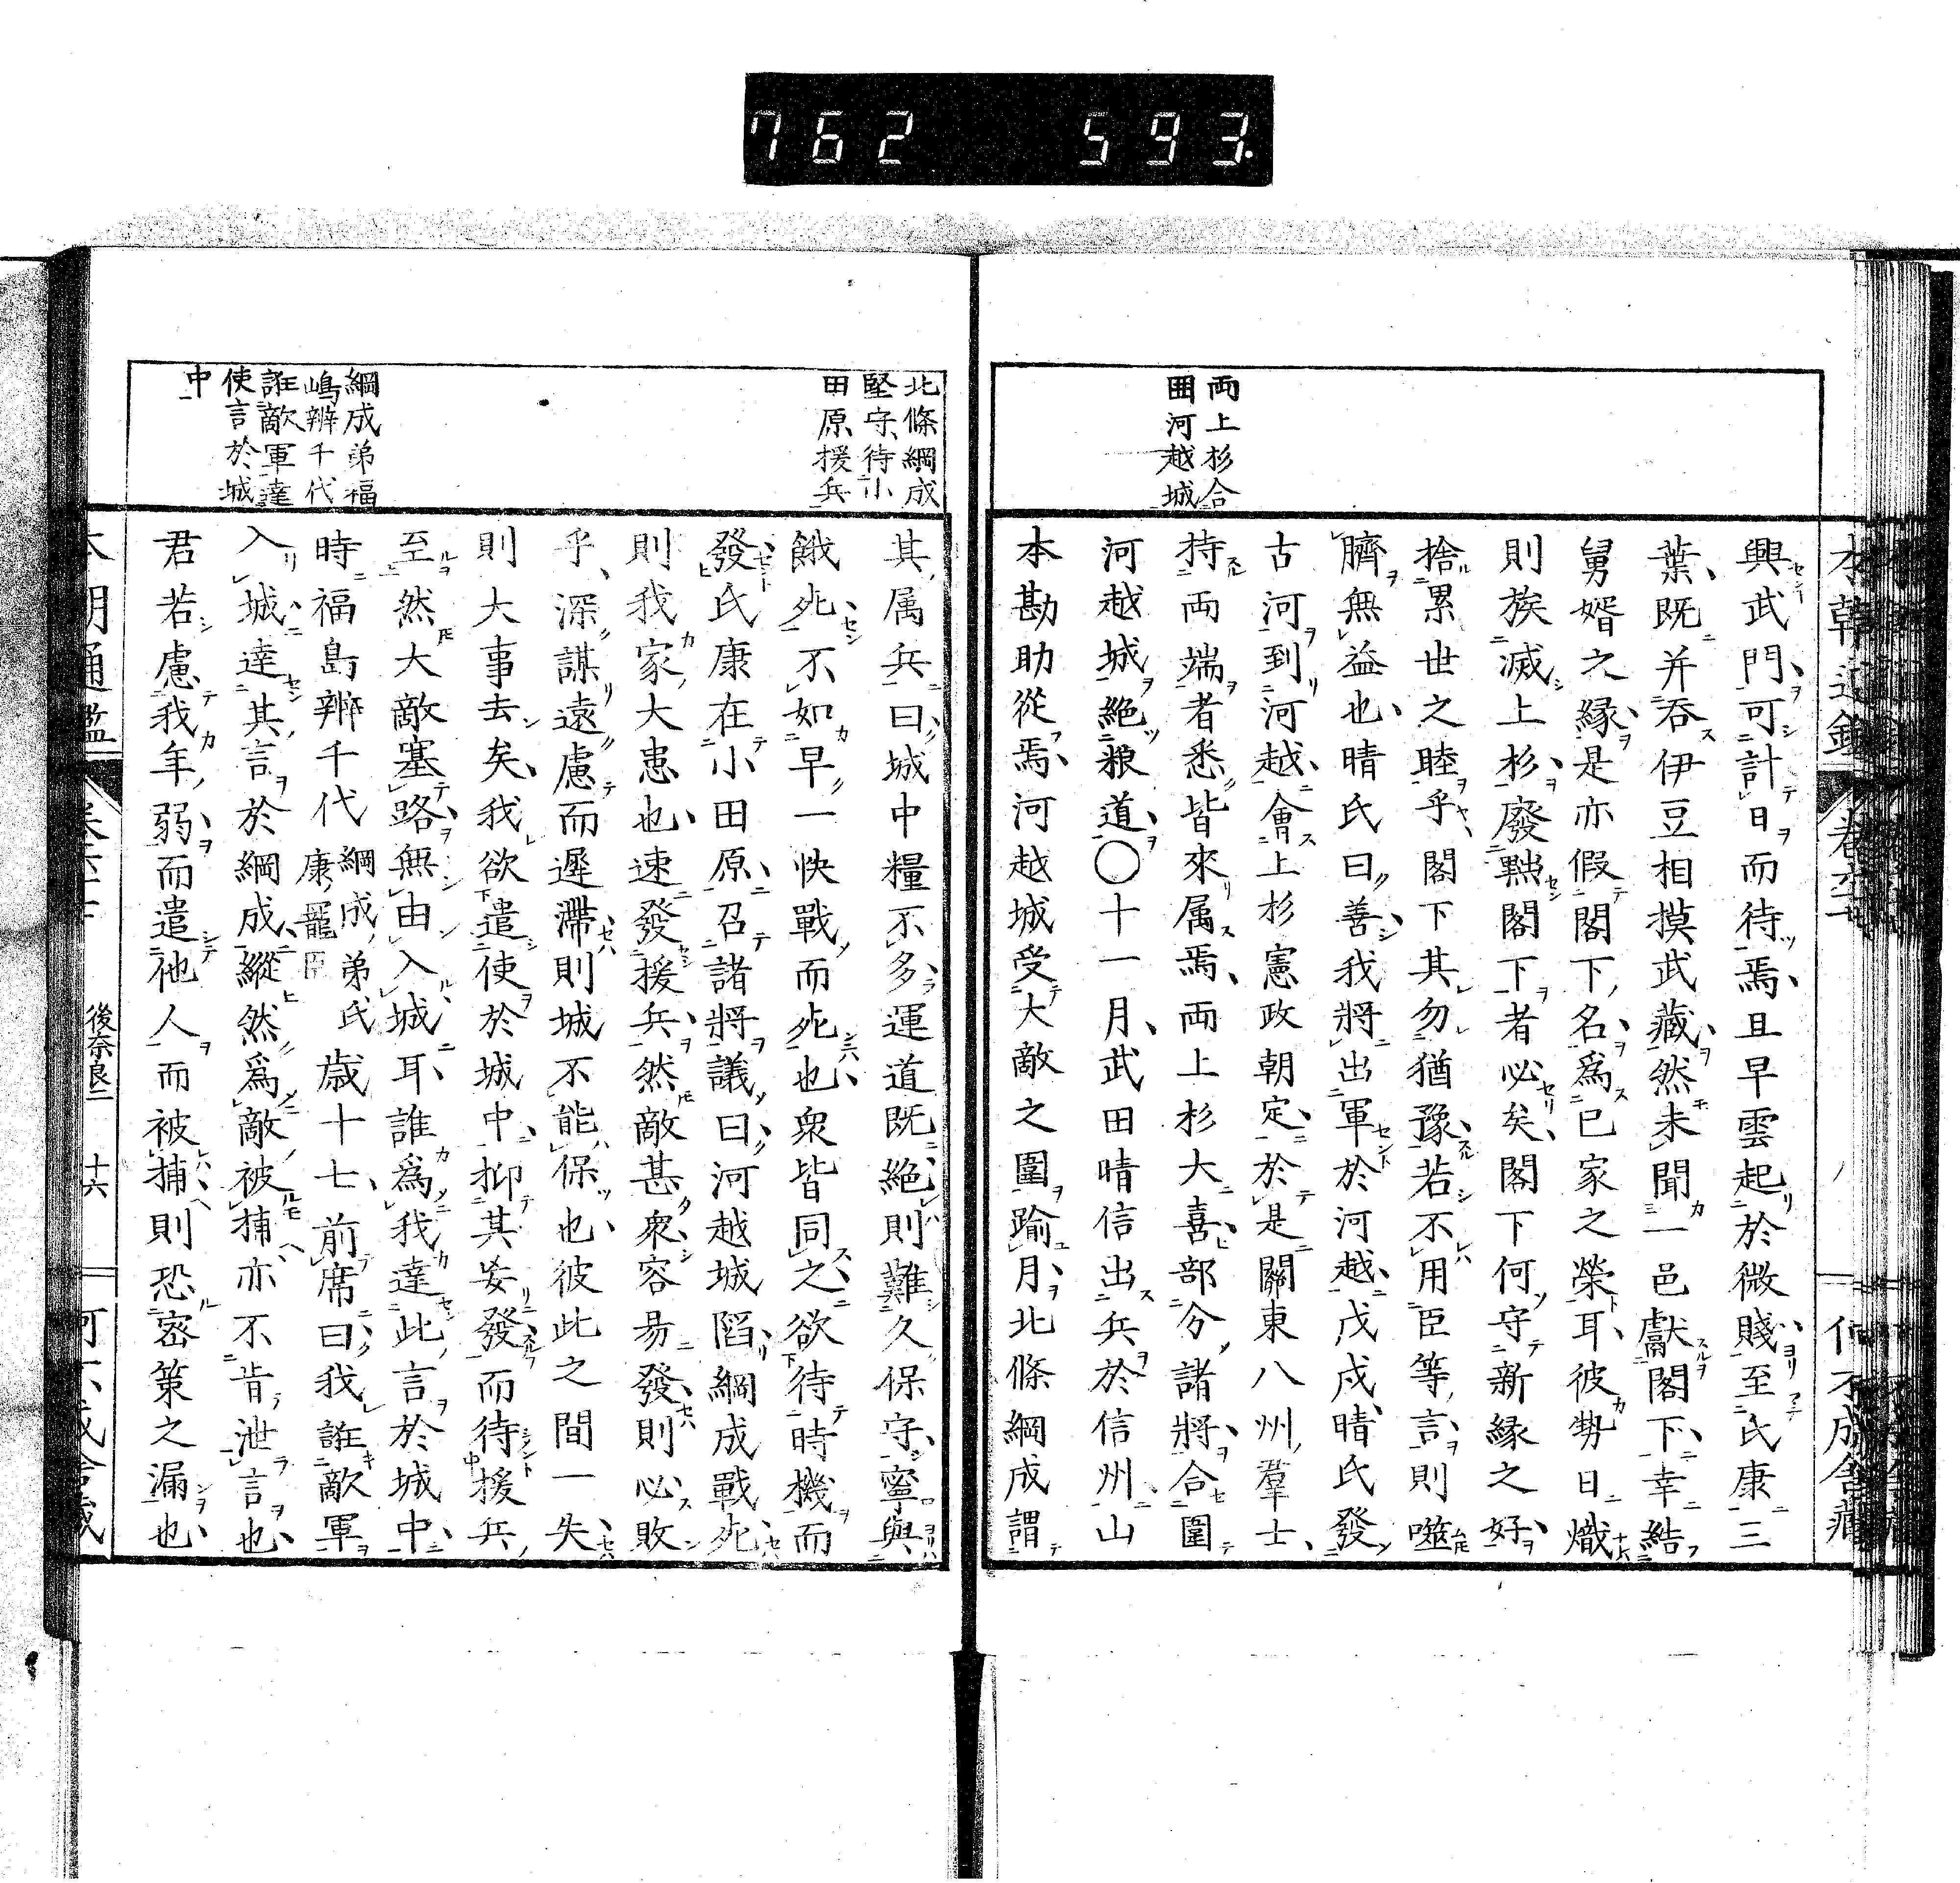 762 593.
両上杉合
囲河越城
興武門可計日而待焉且早雲起於微賤至氏康三
葉既并呑伊豆相摸武藏然未聞一邑獻閣下幸結
舅婿之縁是亦假閣下名爲已家之榮耳彼勢日熾
則族滅上杉廢黜閣下者必矣閣下何守新縁之好
捨累世之睦乎閣下其勿猶豫若不用臣等言則噬
臍無益也晴氏曰善我將出軍於河越戊戌晴氏發
古河到河越會上杉憲政朝定於是關東八州羣士
持両端者悉皆來属焉両上杉大喜部分諸將合圍
河越城絶粮道〇十一月武田晴信出兵於信州山
本勘助從焉河越城受大敵之圍踰月北條綱成謂
北條綱成
堅守待小
田原援兵
綱成弟福
嶋辨千代
誑敵軍達
使言於城
中
其属兵曰城中糧不多運道既絶則難久保守寧與
餓死不如早一快戰而死也衆皆同之欲待時機而
發氏康在小田原召諸將議曰河越城陷綱成戰死
則我家大患也速發援兵然敵甚衆容易發則必敗
乎深謀遠慮而遲滯則城不能保也彼此之間一失
則大事去矣我欲遣使於城中抑其妄發而待援兵
至然大敵塞路無由入城耳誰爲我達此言於城中
時福島辨千代綱成弟氏康寵臣歳十七前席曰我誑敵軍
入城達其言於綱成縱然爲敵被捕亦不肯泄言也
君若慮我年弱而遣他人而被捕則恐密策之漏也
後奈良二 十六